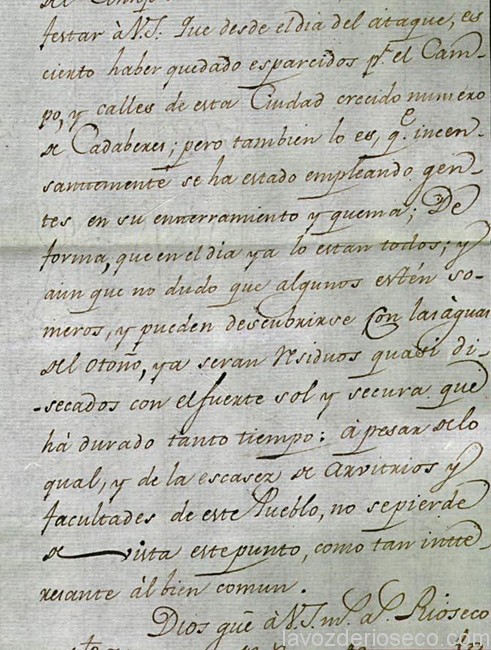 testar à V.I. Que desde el dia del ataque, es
cierto haber quedado esparcidos pr. el Cam-
po, y calles de esta Ciudad crecido numero
de Cadaberes; pero tambien lo es, qe. incen-
santemente se ha estado empleando gen-
tes en su enterramiento y quema; De
forma, que en el dia ya lo estan todos; y
aun que no dudo que algunos estén so-
meros, y pueden descubrirse con las àguas
del otoño, ya seran residuos quasi di-
-secados con el fuerte sol y secura que
há durado tanto tiempo: à pesar de lo
qual, y de la escaser de arvitrios y
facultades de este Pueblo, no se pierde
de vista este punto, como tan intte-
resante ál bien comun.
Dios gūe à V.I. ms. as. Rioseco
lavozderioseco.com